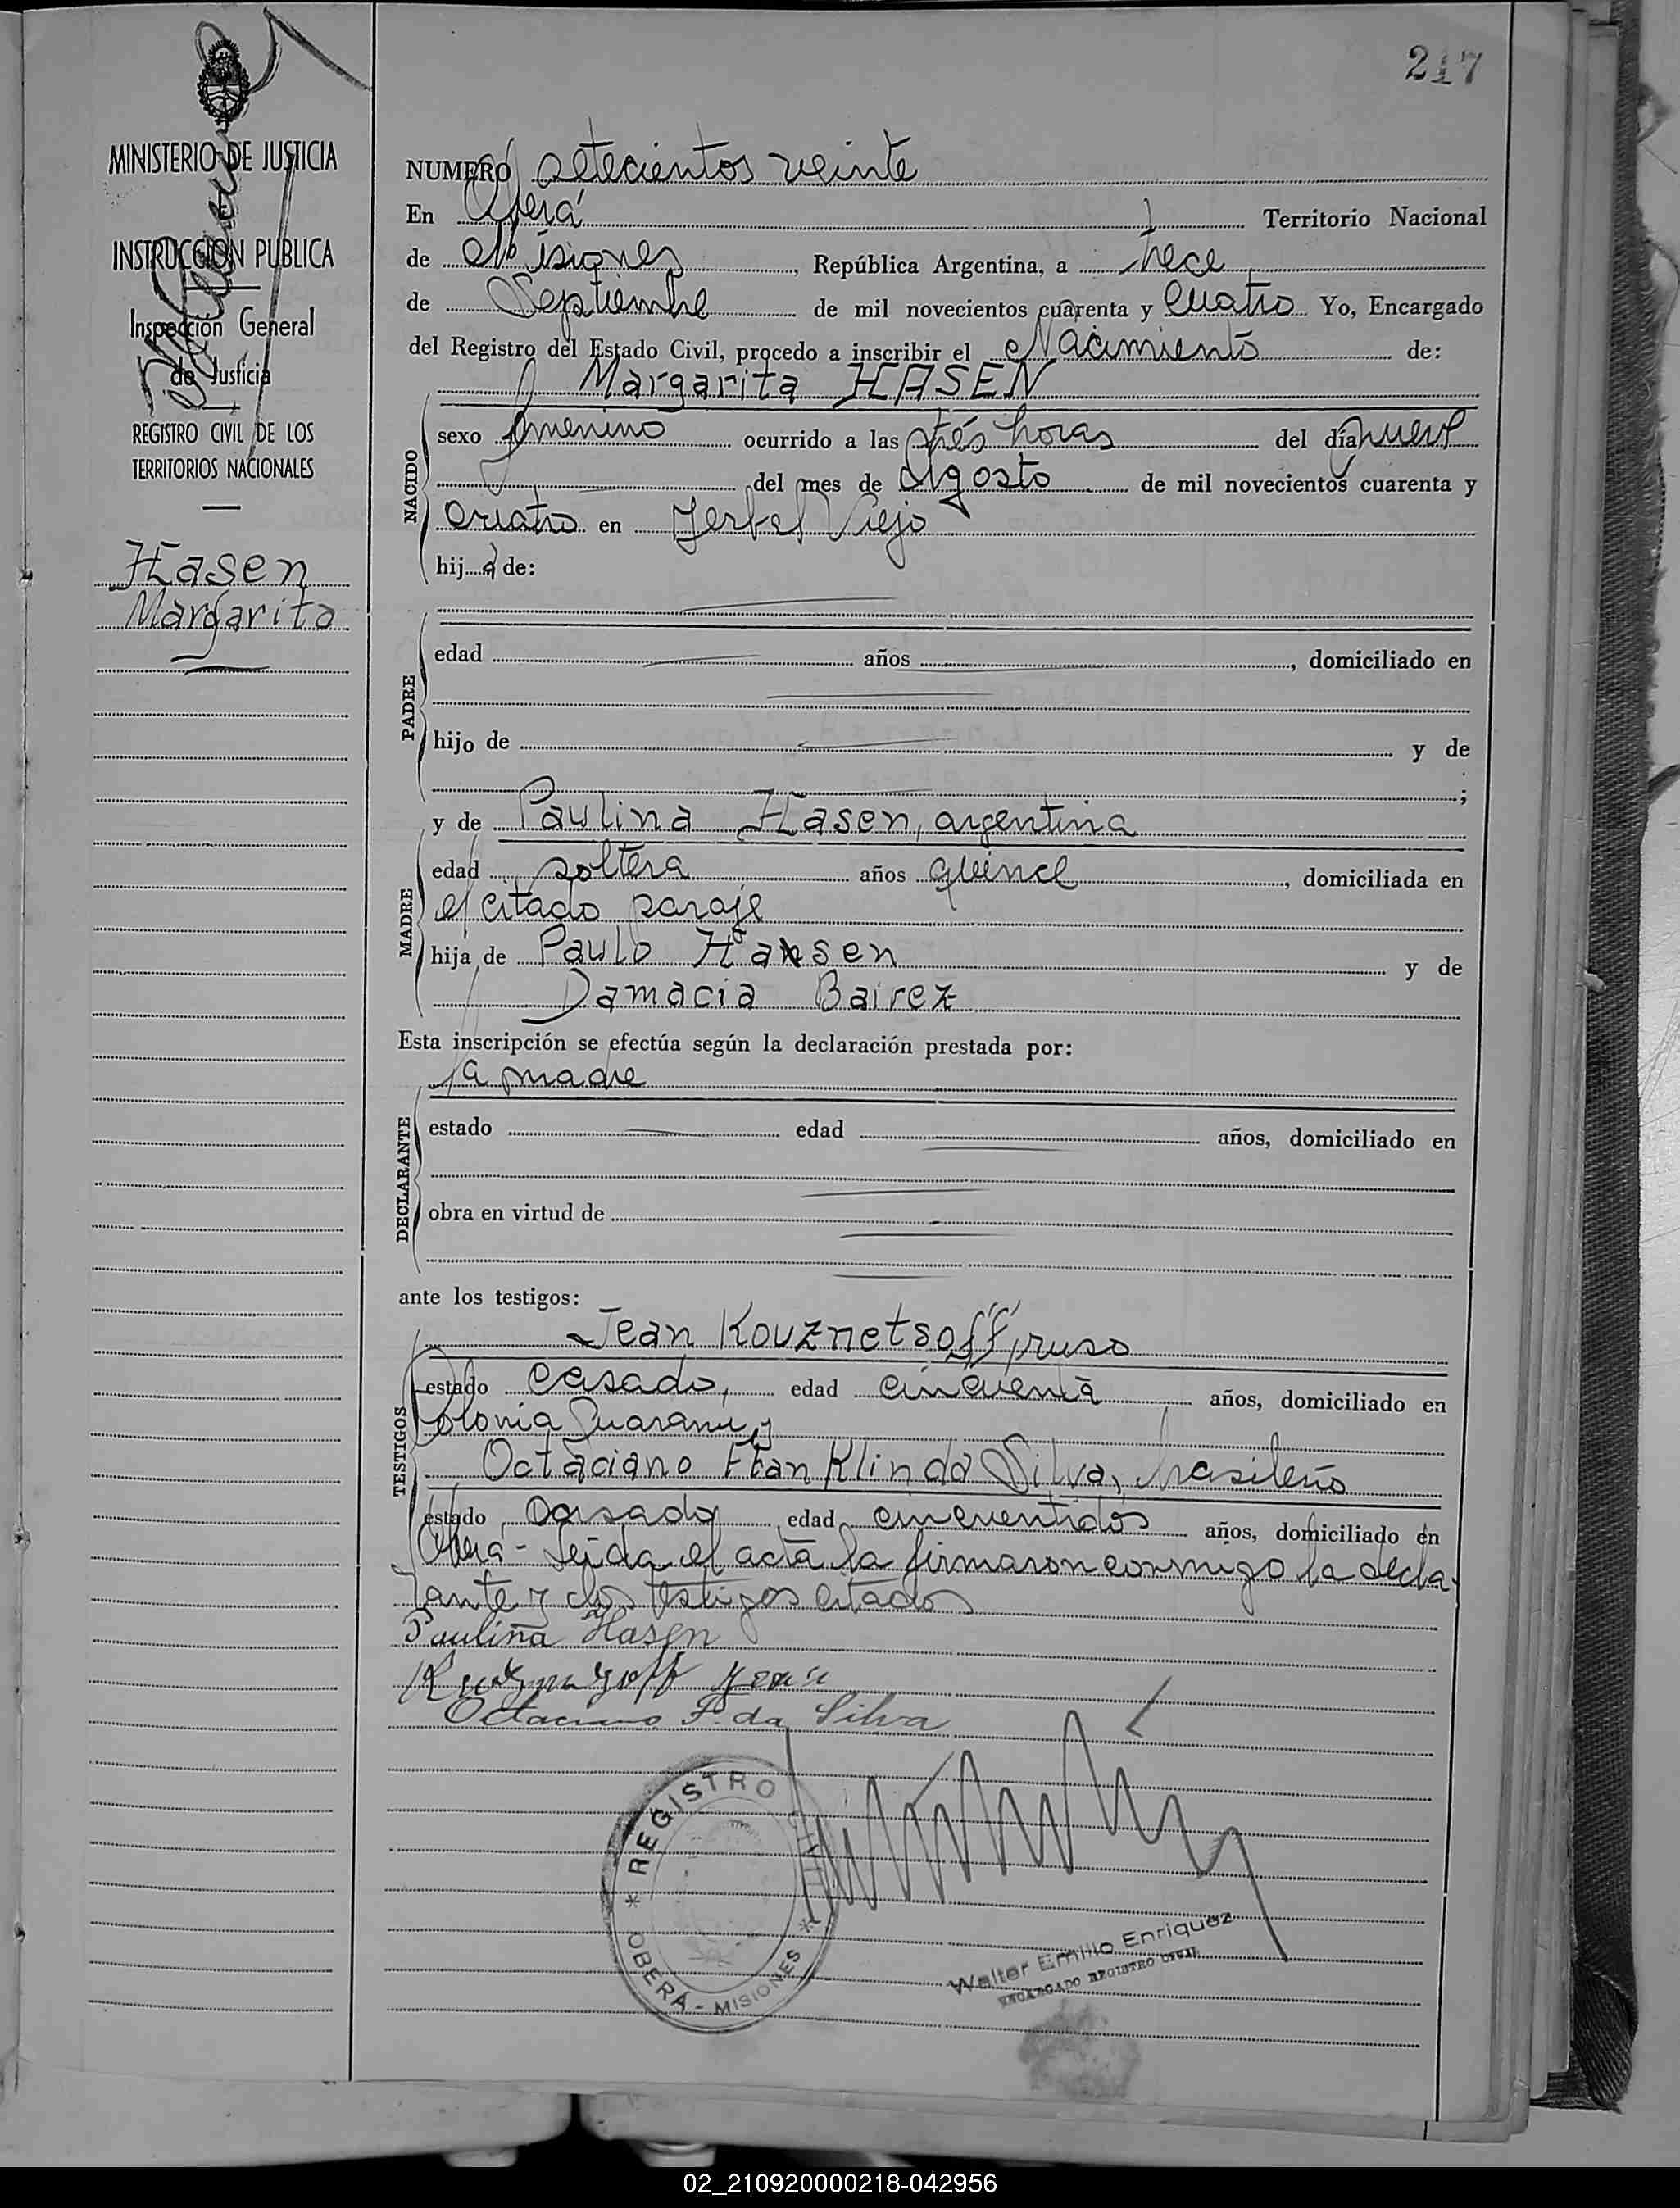 217
MINISTERIO DE JUSTICIA
INSTRUCCION PUBLICA
Inspección General
de Justicia
REGISTRO CIVIL DE LOS
TERRITORIOS NACIONALES
Hasen
Margarita
NUMERO setecientos veinte
En Oberá Territorio Nacional
de Misiones, República Argentina, a trece
de Septiembre de mil novecientos cuarenta y cuatro Yo, Encargado
del Registro del Estado Civil, procedo a inscribir el Nacimiento de:
Margarita HASEN
NACIDO
sexo femenino ocurrido a las trés horas del día nueve
del mes de Agosto de mil novecientos cuarenta y
cuatro en Yerbal Viejo
hij a de:
PADRE
edad años , domiciliado en
hijo de y de
;
MADRE
y de Paulina Hasen, argentina
edad soltera años quince, domiciliada en
el citado paraje
hija de Paulo Hasen y de
Damacia Bairez
Esta inscripción se efectúa según la declaración prestada por:
la madre
DECLARANTE
estado edad años, domiciliado en
obra en virtud de
ante los testigos:
TESTIGOS
Jean Kouznetsoff, ruso
estado casado, edad cincuenta años, domiciliado en
Colonia Guarani y
Octaciano Franklin da Silva, brasileño
estado casado edad cincuentidos años, domiciliado en
Oberá - Leida el acta la firmaron conmigo la decla-
rante y los testigos citados
Paulina Hasen
Octaciano F. da Silva
REGISTRO CIVIL
* OBERÁ - MISIONES *
Walter Emilio Enriquez
ENCARGADO REGISTRO CIVIL
02_210920000218-042956